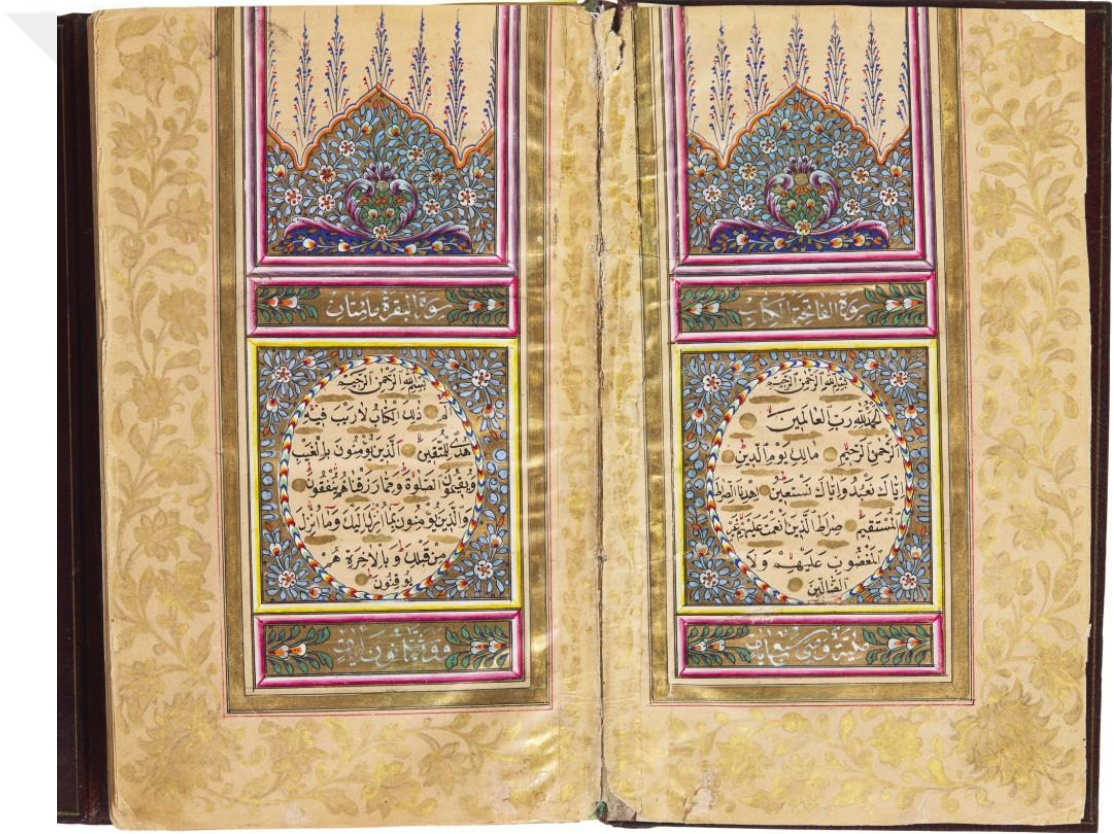 سورة الفاتحة الكتاب
بِسْمِ اللهِ الرَّحْمٰنِ الرَّحِيمِ
اَلْحَمْدُ لِلّٰهِ رَبِّ الْعَالَمِينَ
اَلرَّحْمٰنِ الرَّحِيمِ مَالِكِ يَوْمِ الدِّينِ
اِيَّاكَ نَعْبُدُ وَاِيَّاكَ نَسْتَعِينُ اِهْدِنَا الصِّرَاطَ
الْمُسْتَقِيمَ صِرَاطَ الَّذِينَ اَنْعَمْتَ عَلَيْهِمْ غَيْرِ
الْمَغْضُوبِ عَلَيْهِمْ وَلَا
الضَّالِّينَ
مكية وهي سبع ايات
سورة البقرة مائتان
بِسْمِ اللهِ الرَّحْمٰنِ الرَّحِيمِ
الم ذٰلِكَ الْكِتَابُ لَا رَيْبَ فِيهِ
هُدًى لِلْمُتَّقِينَ اَلَّذِينَ يُؤْمِنُونَ بِالْغَيْبِ
وَيُقِيمُونَ الصَّلٰوةَ وَمِمَّا رَزَقْنَاهُمْ يُنْفِقُونَ
وَالَّذِينَ يُؤْمِنُونَ بِمَا اُنْزِلَ اِلَيْكَ وَمَا اُنْزِلَ
مِنْ قَبْلِكَ وَبِالْاٰخِرَةِ هُمْ
يُوقِنُونَ